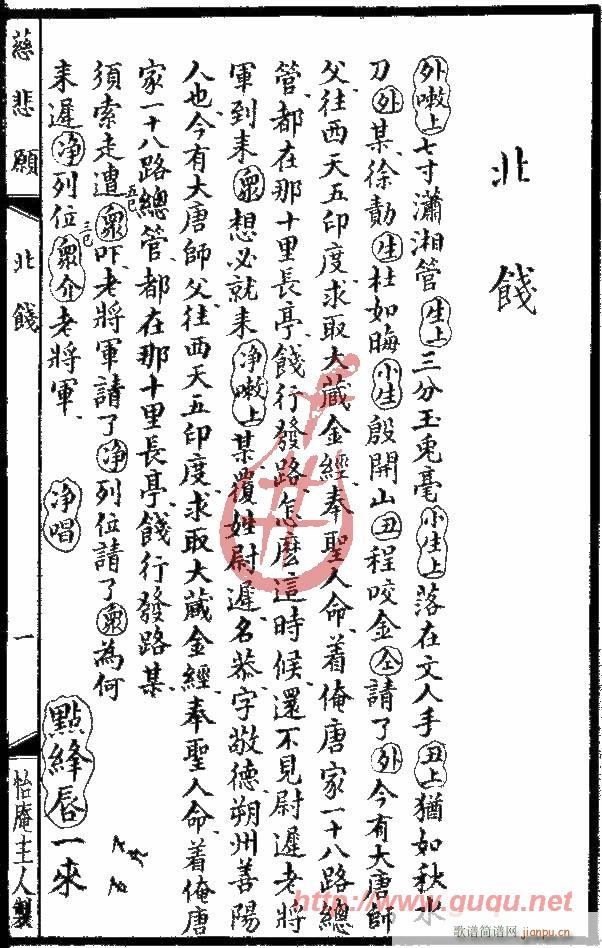 北餞
外嗽上七寸瀟湘管生上三分玉兎毫小生上落在文人手丑上猶如秋水
刀外某徐勣生杜如晦小生殷開山丑程咬金仝請了外今有大唐師
父、往西天五印度、求取大藏金經、奉聖人命、着俺唐家一十八路總
管、都在那十里長亭、餞行發路、怎麽這時候、還不見尉遲老將
軍到來衆想必就來淨嗽上某覆姓尉遲、名恭、字敬德、朔州善陽
人也、今有大唐師父、往西天五印度、求取大藏金經、奉聖人命、着俺唐
家一十八路總管、都在那十里長亭、餞行發路、某
須索走遭衆吓、老將軍請了淨列位請了衆為何
來遲淨列位衆介老將軍、淨唱點絳唇一來
慈悲願
北餞
一
怡庵主人製
http://www.guqu.net
歌谱简谱网
jianpu.cn